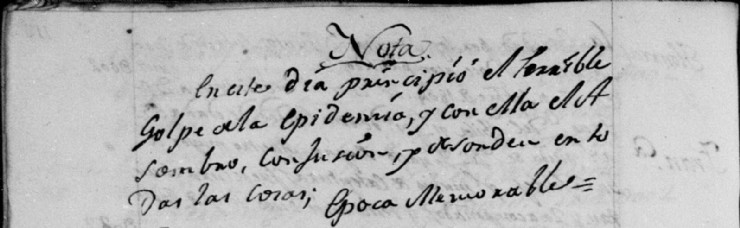 Nota.
En este dia principió el terrible
Golpe de la Epidemia, y con ella el A
sombro, confusion, y desorden en to
das las cosas; Epoca Memorable =